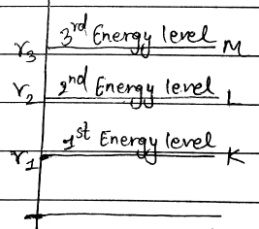 r3 3rd Energy level M
r2 2nd Energy level L
r1 1st Energy level K